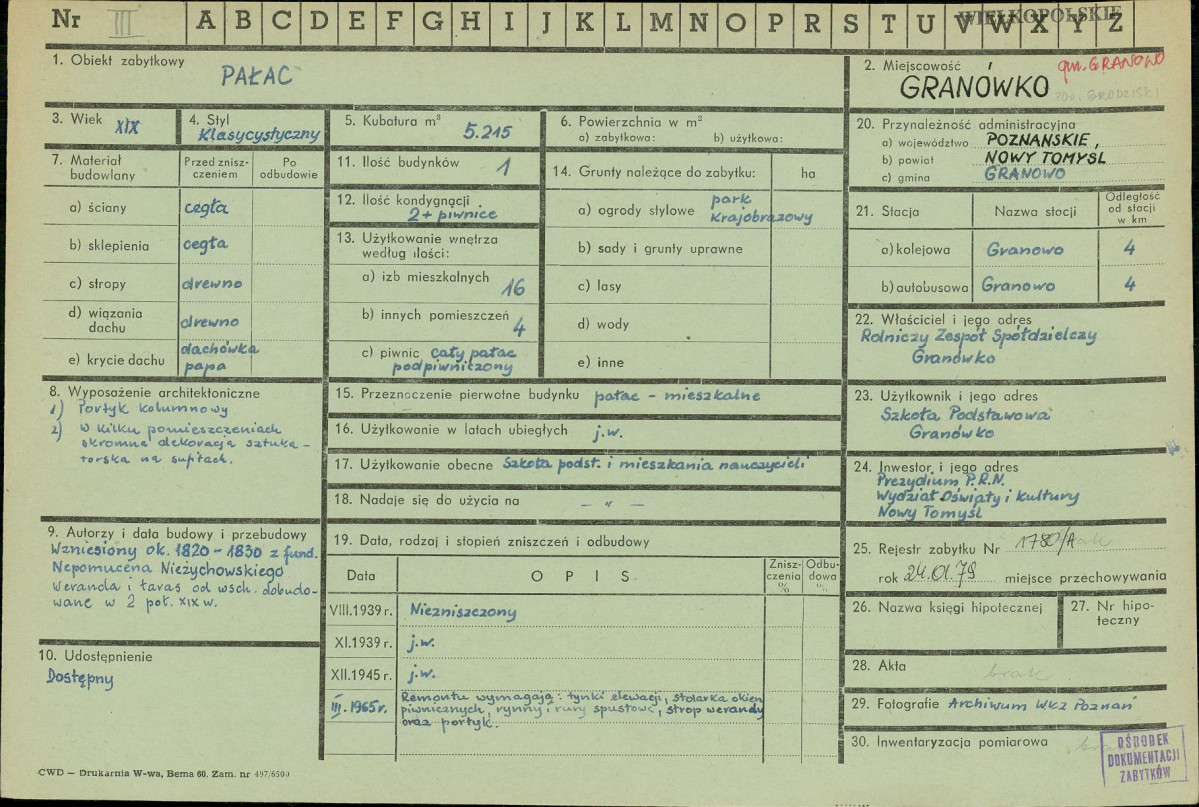 Nr III A B C D E F G H I J K L M N O P R S T U V W X Y Z
WIELKOPOLSKIE
1. Obiekt zabytkowy
PAŁAC
2. Miejscowość
gm. GRANOWO
GRANÓWKO
pow. GRODZISKI
3. Wiek XIX
4. Styl
Klasycystyczny
5. Kubatura m³
5.215
6. Powierzchnia w m²
a) zabytkowa: b) użytkowa:
7. Materiał budowlany
Przed zniszczeniem
Po odbudowie
a) ściany cegła
b) sklepienia cegła
c) stropy drewno
d) wiązania dachu drewno
e) krycie dachu dachówka
papa
8. Wyposażenie architektoniczne
1) Portyk kolumnowy
2) W kilku pomieszczeniach
skromna dekoracja sztuka-
torska na sufitach.
9. Autorzy i data budowy i przebudowy
Wzniesiony ok. 1820-1830 z fund.
Nepomucena Nieżychowskiego
Weranda i taras od wsch. dobudo-
wane w 2 poł. XIX w.
10. Udostępnienie
Dostępny
11. Ilość budynków 1
12. Ilość kondygnacji
2 + piwnice
13. Użytkowanie wnętrza
według ilości:
a) izb mieszkalnych
16
b) innych pomieszczeń
4
c) piwnic cały pałac
podpiwniczony
14. Grunty należące do zabytku: ha
a) ogrody stylowe park
krajobrazowy
b) sady i grunty uprawne
c) lasy
d) wody
e) inne
15. Przeznaczenie pierwotne budynku pałac - mieszkalne
16. Użytkowanie w latach ubiegłych j.w.
17. Użytkowanie obecne Szkoła podst. i mieszkania nauczycieli
18. Nadaje się do użycia na — „ —
19. Data, rodzaj i stopień zniszczeń i odbudowy
Data OPIS Zniszczenia % Odbudowa %
VIII.1939 r. Niezniszczony
XI.1939 r. j.w.
XII.1945 r. j.w.
III.1965 r. Remontu wymagają: tynki elewacji, stolarka okien
piwnicznych, rynny i rury spustowe, strop werandy
oraz portyk.
20. Przynależność administracyjna
a) województwo POZNAŃSKIE,
b) powiat NOWY TOMYSL
c) gmina GRANOWO
21. Stacja Nazwa stacji Odległość od stacji w km
a) kolejowa Granowo 4
b) autobusowa Granowo 4
22. Właściciel i jego adres
Rolniczy Zespół Spółdzielczy
Granówko
23. Użytkownik i jego adres
Szkoła Podstawowa
Granówko
24. Inwestor i jego adres
Prezydium P.R.N.
Wydział Oświaty i Kultury
Nowy Tomyśl
25. Rejestr zabytku Nr 1780/A brak
rok 24.01.79 miejsce przechowywania
26. Nazwa księgi hipotecznej
27. Nr hipoteczny
28. Akta brak
29. Fotografie Archiwum WKZ Poznań
30. Inwentaryzacja pomiarowa brak
OŚRODEK
DOKUMENTACJI
ZABYTKÓW
CWD — Drukarnia W-wa, Bema 60. Zam. nr 497/6500